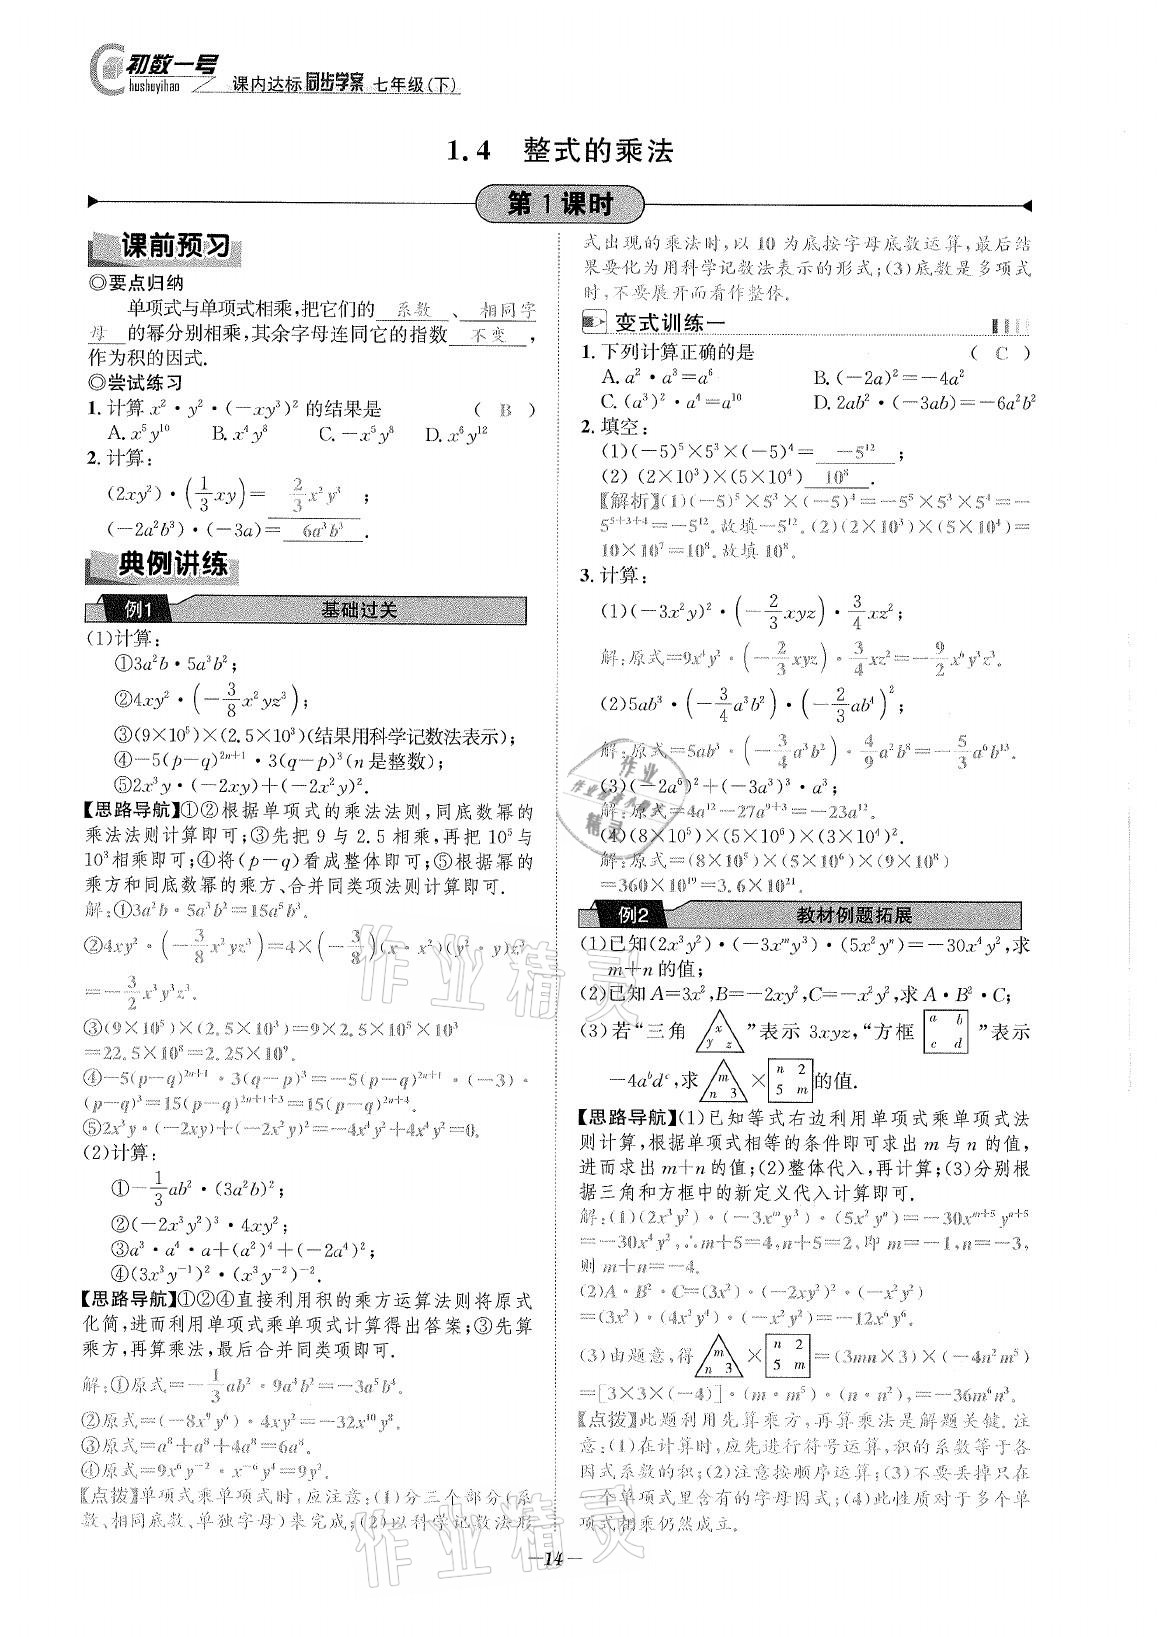 初数一号
hushuyihao
课内达标 同步学案 七年级(下)
1.4 整式的乘法
第1课时
课前预习
◎要点归纳
单项式与单项式相乘,把它们的 系数 、 相同字
母 的幂分别相乘,其余字母连同它的指数 不变 ,
作为积的因式.
◎尝试练习
1.计算 x²·y²·(-xy³)² 的结果是 ( B )
A.x⁵y¹⁰ B.x⁴y⁸ C.-x⁵y⁸ D.x⁶y¹²
2.计算:
(2xy²)·(1/3xy)= 2/3x²y³ ;
(-2a²b³)·(-3a)= 6a³b³ .
典例讲练
例1 基础过关
(1)计算:
①3a²b·5a³b²;
②4xy²·(-3/8x²yz³);
③(9×10⁵)×(2.5×10³)(结果用科学记数法表示);
④-5(p-q)²ⁿ⁺¹·3(q-p)³(n是整数);
⑤2x³y·(-2xy)+(-2x²y)².
【思路导航】①②根据单项式的乘法法则,同底数幂的
乘法法则计算即可;③先把 9 与 2.5 相乘,再把 10⁵与
10³相乘即可;④将(p-q)看成整体即可;⑤根据幂的
乘方和同底数幂的乘方、合并同类项法则计算即可.
解:①3a²b·5a³b²=15a⁵b³。
②4xy²·(-3/8x²yz³)=4×(-3/8)(x·x²)(y²·y)z³
=-3/2x³y³z³。
③(9×10⁵)×(2.5×10³)=9×2.5×10⁵×10³
=22.5×10⁸=2.25×10⁹。
④-5(p-q)²ⁿ⁺¹·3(q-p)³=-5(p-q)²ⁿ⁺¹·(-3)·
(p-q)³=15(p-q)²ⁿ⁺¹⁺³=15(p-q)²ⁿ⁺⁴。
⑤2x³y·(-2xy)+(-2x²y)²=-4x⁴y²+4x⁴y²=0。
(2)计算:
①-1/3ab²·(3a²b)²;
②(-2x³y²)³·4xy²;
③a³·a⁴·a+(a²)⁴+(-2a⁴)²;
④(3x³y⁻¹)²·(x³y⁻²)⁻².
【思路导航】①②④直接利用积的乘方运算法则将原式
化简,进而利用单项式乘单项式计算得出答案;③先算
乘方,再算乘法,最后合并同类项即可.
解:①原式=-1/3ab²·9a⁴b²=-3a⁵b⁴。
②原式=(-8x⁹y⁶)·4xy²=-32x¹⁰y⁸。
③原式=a⁸+a⁸+4a⁸=6a⁸。
④原式=9x⁶y⁻²·x⁻⁶y⁴=9y²。
【点拨】单项式乘单项式时,应注意:(1)分三个部分(系
数、相同底数、单独字母)来完成;(2)以科学记数法形
式出现的乘法时,以 10 为底按字母底数运算,最后结
果要化为用科学记数法表示的形式;(3)底数是多项式
时,不要展开而看作整体。
变式训练一
1.下列计算正确的是 ( C )
A.a²·a³=a⁶ B.(-2a)²=-4a²
C.(a³)²·a⁴=a¹⁰ D.2ab²·(-3ab)=-6a²b²
2.填空:
(1)(-5)⁵×5³×(-5)⁴= -5¹² ;
(2) (2×10³)×(5×10⁴) 10⁸ .
【解析】(1)(-5)⁵×5³×(-5)⁴=-5⁵×5³×5⁴=-
5⁵⁺³⁺⁴=-5¹²。故填-5¹²。(2)(2×10³)×(5×10⁴)=
10×10⁷=10⁸。故填 10⁸。
3.计算:
(1)(-3x²y)²·(-2/3xyz)·3/4xz²;
解:原式=9x⁴y²·(-2/3xyz)·3/4xz²=-9/2x⁶y³z³。
(2)5ab³·(-3/4a³b²)·(-2/3ab⁴)²;
解:原式=5ab³·(-3/4a³b²)·4/9a²b⁸=-5/3a⁶b¹³。
(3)(-2a⁶)²+(-3a³)³·a³;
解:原式=4a¹²-27a⁹⁺³=-23a¹²。
(4)(8×10⁵)×(5×10⁶)×(3×10⁴)².
解:原式=(8×10⁵)×(5×10⁶)×(9×10⁸)
=360×10¹⁹=3.6×10²¹。
例2 教材例题拓展
(1)已知(2x³y²)·(-3xᵐy³)·(5x²yⁿ)=-30x⁴y²,求
m+n的值;
(2)已知A=3x²,B=-2xy²,C=-x²y²,求A·B²·C;
(3)若“三角 x y z ”表示 3xyz,“方框 a b c d ”表示
-4aᵇdᶜ,求 m n 3 × n 2 5 m 的值.
【思路导航】(1)已知等式右边利用单项式乘单项式法
则计算,根据单项式相等的条件即可求出 m 与 n 的值,
进而求出 m+n 的值;(2)整体代入,再计算;(3)分别根
据三角和方框中的新定义代入计算即可.
解:(1)(2x³y²)·(-3xᵐy³)·(5x²yⁿ)=-30xᵐ⁺⁵yⁿ⁺⁵
=-30x⁴y²,∴m+5=4,n+5=2,即 m=-1,n=-3,
则 m+n=-4。
(2)A·B²·C=(3x²)·(-2xy²)²·(-x²y²)
=(3x²)·(4x²y⁴)·(-x²y²)=-12x⁶y⁶。
(3)由题意,得 m n 3 × n 2 5 m =(3mn×3)×(-4n²m⁵)
=[3×3×(-4)]·(m·m⁵)·(n·n²),=-36m⁶n³。
【点拨】此题利用先算乘方,再算乘法是解题关键。注
意:(1)在计算时,应先进行符号运算,积的系数等于各
因式系数的积;(2)注意按顺序运算;(3)不要丢掉只在
一个单项式里含有的字母因式;(4)此性质对于多个单
项式相乘仍然成立。
作业精灵
作业精灵
—14—